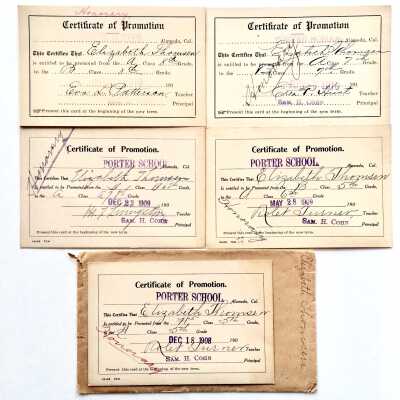 Honorary
Certificate of Promotion
Alameda, Cal.
This Certifies That Elizabeth Thomsen
is entitled to be promoted from the A 8th Grade,
to the B Grade.
Eva L. Patterson Teacher
Principal
Present this card at the beginning of the new term.
Certificate of Promotion
Alameda, Cal.
This Certifies That Elizabeth Thomsen
is entitled to be promoted from the A 7th Grade,
to the Grade.
Honorary
Teacher
SAM. H. COHN Principal
Present this card at the beginning of the new term.
Honorary
Certificate of Promotion.
PORTER SCHOOL.
Alameda, Cal.
This Certifies That Elizabeth Thomsen
is entitled to be Promoted from the Class Grade,
to A Class Grade.
DEC 22 1909 190
Teacher
SAM. H. COHN Principal
Present this card at the beginning of the new term.
Certificate of Promotion.
PORTER SCHOOL.
Alameda, Cal.
This Certifies That Elizabeth Thomsen
is entitled to be Promoted from the B Class 5th Grade,
to Class 6th Grade.
MAY 28 1909 190
Honorary
Violet Turner Teacher
SAM. H. COHN Principal
Present this card at the beginning of the new term.
Certificate of Promotion.
PORTER SCHOOL.
Alameda, Cal.
This Certifies That Elizabeth Thomsen
is entitled to be Promoted from the Class 5th Grade,
to Class 5th Grade.
DEC 18 1908 190
Honorary
Violet Turner Teacher
SAM. H. COHN Principal
Present this card at the beginning of the new term.
Elizabeth Thomsen